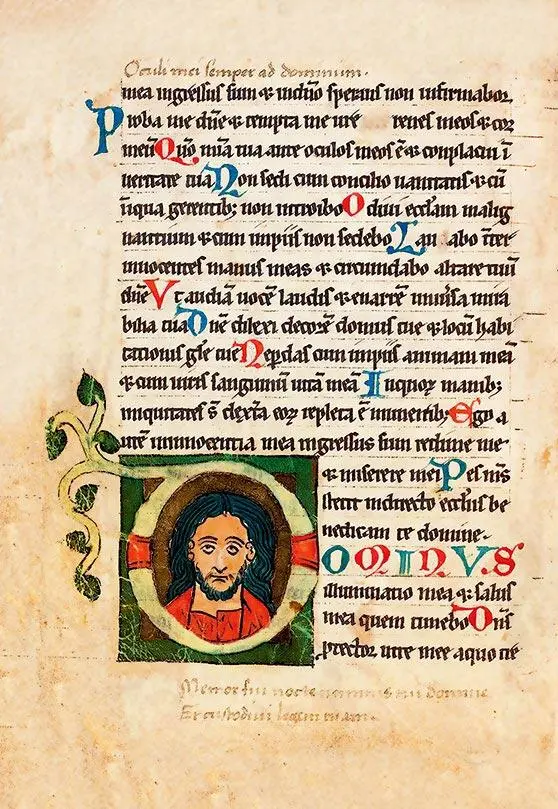 Oculi mei semper ad dominum.
mea ingressus sum & in dño sperans non infirmabor.
Proba me dñe & tempta me ure renes meos & cor
meũ Qm̃ mĩa tua ante oculos meos ẽ & complacui ĩ
veritate tua Non sedi cum concilio vanitatis & cũ
iniqua gerentib; non introibo Odivi ecctam malig
nantium & cum impiis non sedebo Lau abo ĩter
innocentes manus meas & circumdabo altare tuũ
dñe Vt audiã vocẽ laudis & enarrẽ universa mira
bilia tua Dñe dilexi decorẽ domus tue & locũ habi
tationis gle tue Ne perdas cum impiis animam meã
& cum viris sanguinũ vitã meã In quor manib;
iniquitates s̃ dextra eor repleta ẽ muneribus; Ego a
utẽ in innocentia mea ingressus sum redime me
& miserere mei Pes ms̃
stetit in directo ecctiis be
nedicam te domine.
DOMINUS
illuminatio mea & salus
mea quem timebo Dñs
ptector vite mee a quo tre
Memor fui nocte nominis tui domine
Et custodivi legem tuam.